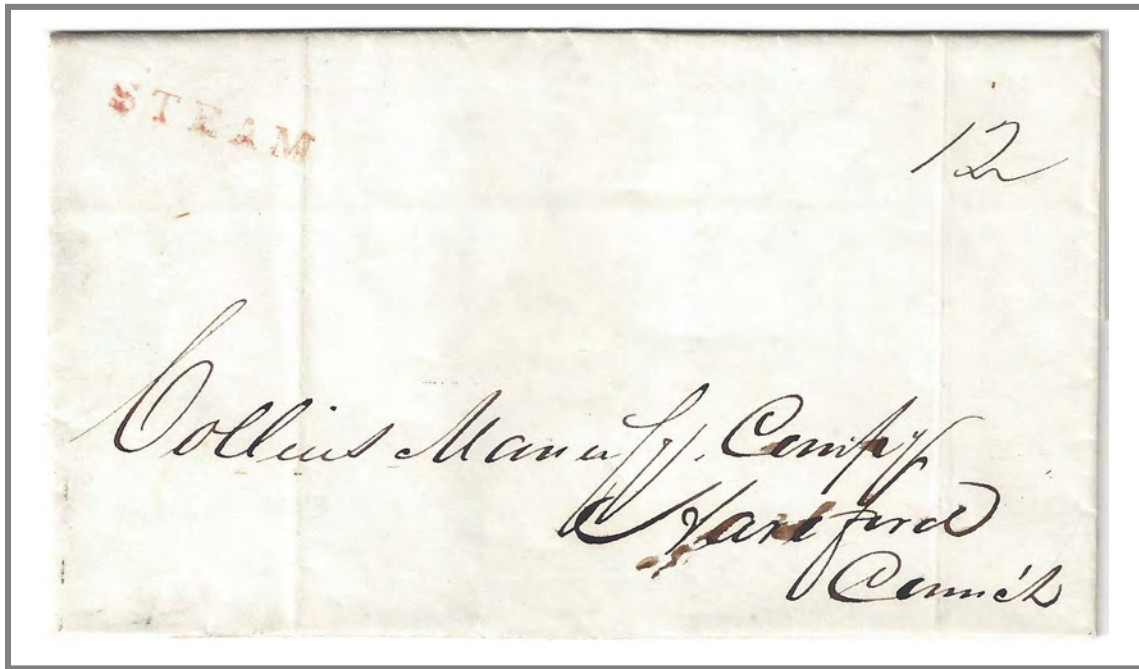 STEAM
12
Collins Manufg. Compy
Hartford
Connct